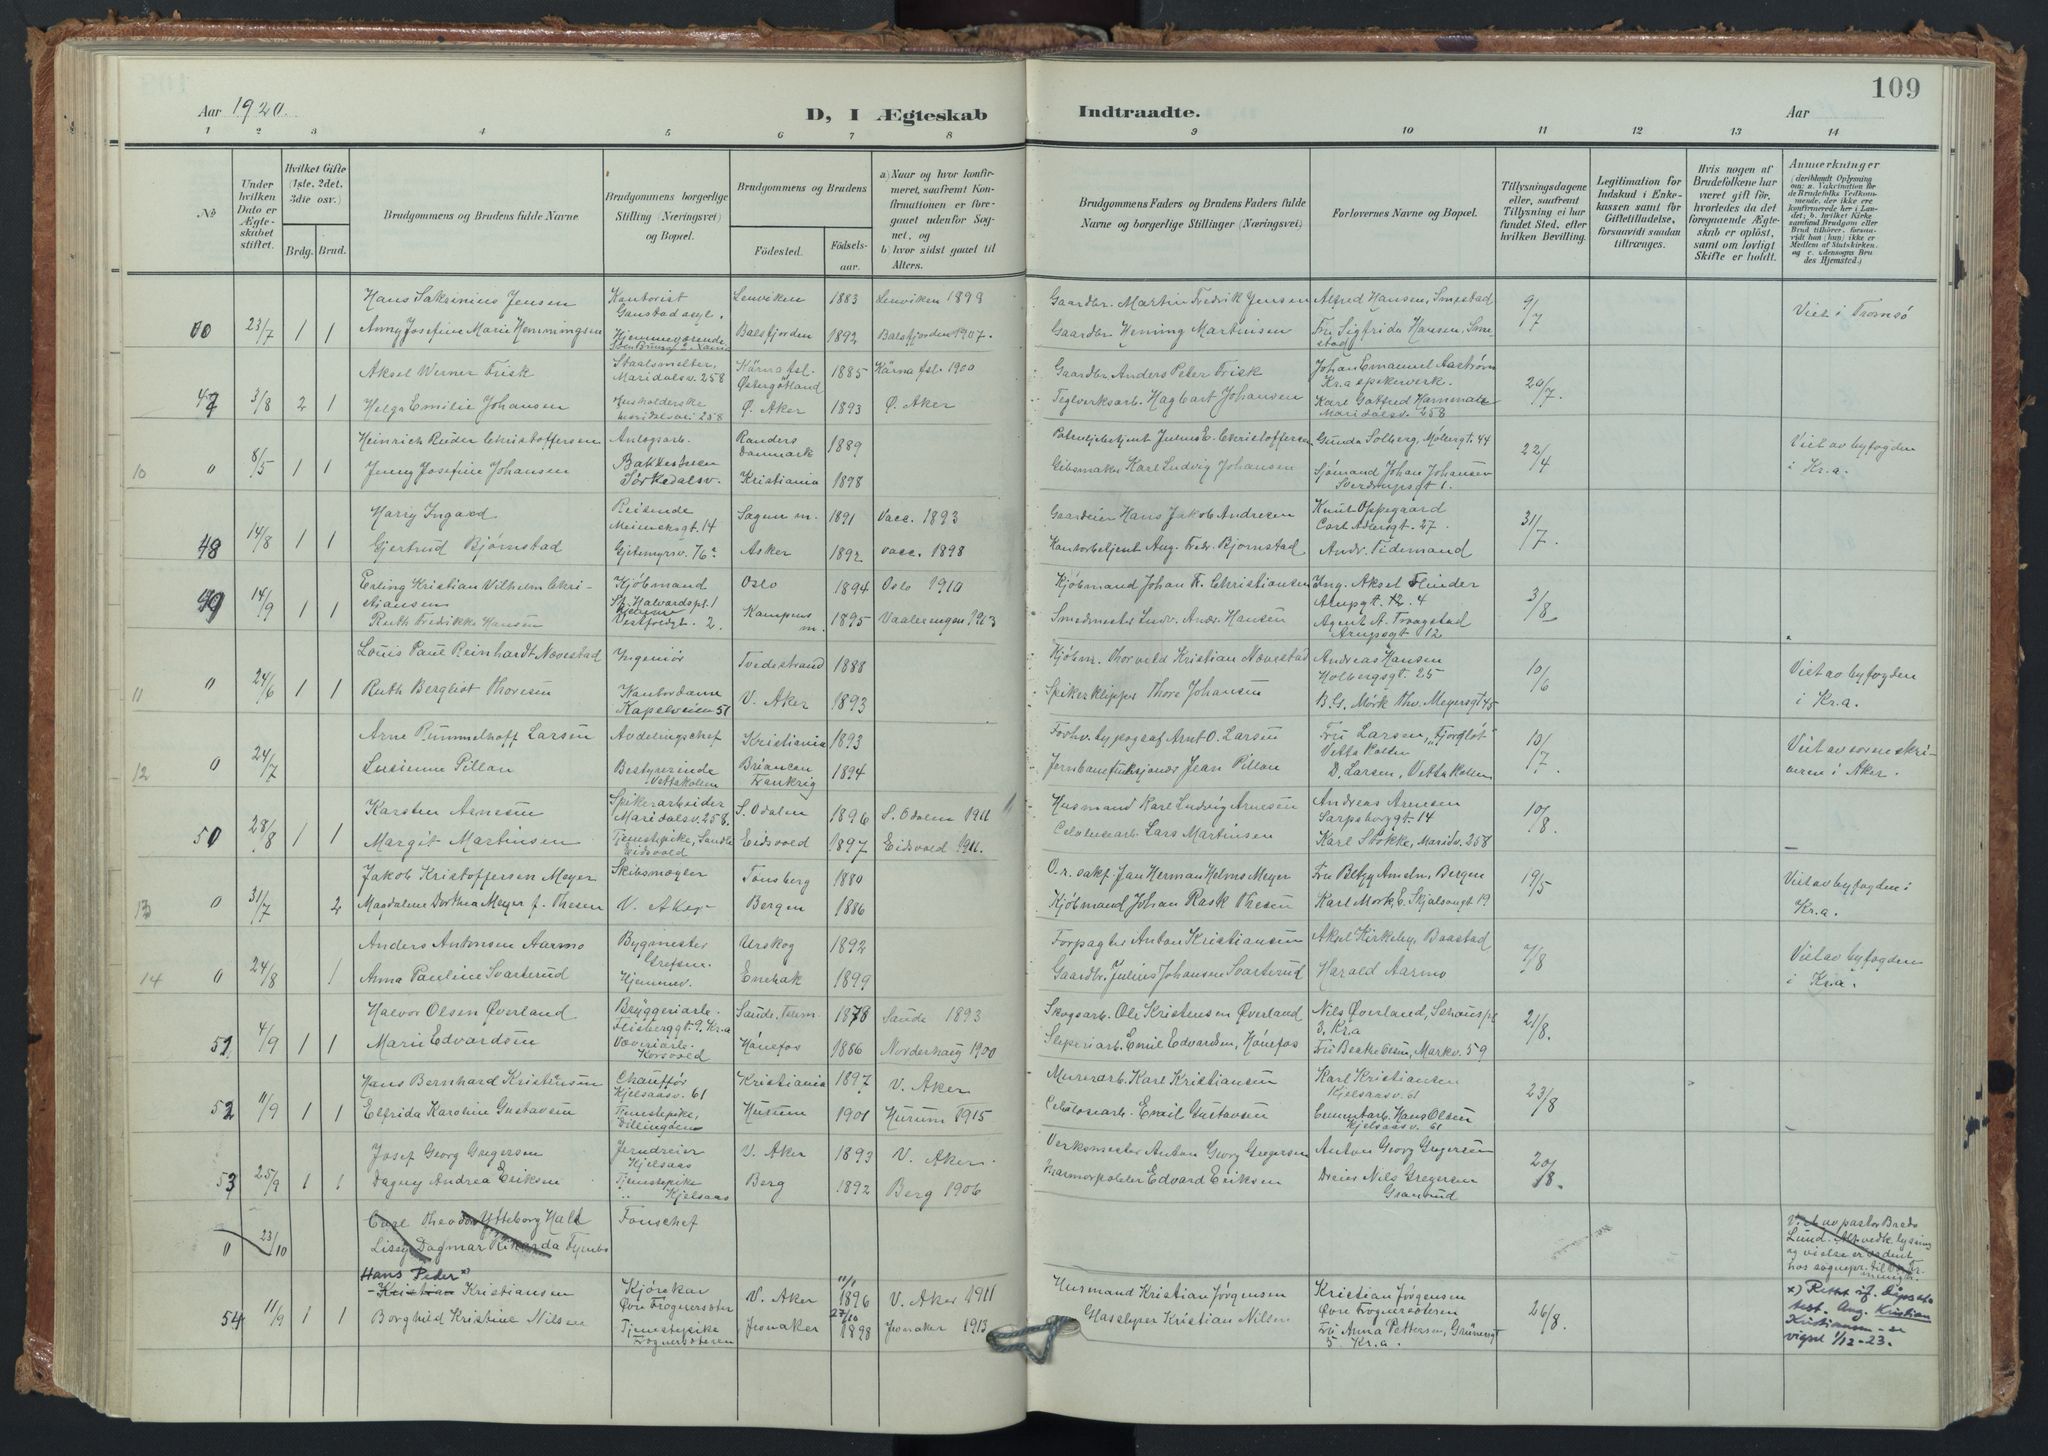 109
Aar 1920.
D, I Ægteskab
Indtraadte.
Aar
1 2 3 4 5 6 7 8
9 10 11 12 13 14
No
Under hvilken Dato er Ægteskabet stiftet.
Hvilket Gifte (1ste, 2det, 3die osv.)
Brdg. Brud.
Brudgommens og Brudens fulde Navne
Brudgommens borgerlige Stilling (Næringsvei) og Bopæl.
Brudgommens og Brudens
Fødested. Fødselsaar.
a) Naar og hvor konfirmeret, saafremt Konfirmationen er foregaaet udenfor Sognet, og
b) hvor sidst gaaet til Alters.
Brudgommens Faders og Brudens Faders fulde Navne og borgerlige Stillinger (Næringsvei)
Forlovernes Navne og Bopæl.
Tillysningsdagene eller, saafremt Tillysning ei har fundet Sted, efter hvilken Bevilling.
Legitimation for Indskud i Enkekassen samt for Giftetilladelse, forsaavidt saadan tiltrænges.
Hvis nogen af Brudefolkene har været gift før, hvorledes da det foregaaende Ægteskab er opløst, samt om lovligt Skifte er holdt.
Anmerkninger
Hans Sakrinius Jensen Kontorist Lenviken 1883 Lenviken 1898 Gaardbr. Martin Fredrik Jensen Alfred Hansen, Smestad 9/7 Viet i Tromsø
23/7 1 1 Anny Josefine Marie Hemmingsen Hjemmeværende Balsfjorden 1892 Balsfjorden 1907. Gaardbr. Hening Martinsen Fru Sigfrida Hansen, Smestad
Aksel Werner Frisk Staalsmelter Maridalsv. 258 Kärna fsl. Østergötland 1885 Kärna fsl. 1900 Gaardbr. Anders Peter Frisk Johan Emanuel Aastrøm Kra spikerverk. 20/7.
47 3/8 2 1 Helga Emilie Johansen Husholderske Maridalsvei 258 Ø. Aker 1893 Ø. Aker Teglverksarb. Hagbart Johansen Karl Gotfred Hammar Maridalsv. 258
Heinrich Ruder Christoffersen Anlægsarb. Randers Danmark 1889 Julius E. Christoffersen Gunda Solberg, Møllergt. 44 22/4 Viet av byfogden i Kr.a.
10 0 8/5 1 1 Jenny Josefine Johansen Bakkestuen Sørkedalsv. Kristiania 1898 Gibsmaker Karl Ludvig Johansen Sjømand Johan Johansen Sverdrupsgt 1.
Harry Ingard Reisende Meinecksgt. 14 Sagene m. 1891 Vacc. 1893 Gaardeier Hans Jakob Andresen Knut Oppegaard Carl Adlersgt. 27. 31/7.
48 14/8 1 1 Gjertrud Bjørnstad Gjetemyrsv. 76a Asker 1892 vacc. 1898 Kontorbetjent Aug. Fredr. Bjørnstad Andr. Tidemand
Erling Kristian Vilhelm Christiansen Kjøbmand St. Halvardspl. 1 Oslo 1894 Oslo 1910 Kjøbmand Johan F. Christiansen Ing. Aksel Flinder Arupgt. 12. 4 3/8
49 14/9 1 1 Ruth Fredrikke Hansen Hjemme Vestfoldgt. 2. Kampens m. 1895 Vaalerengen 1913 Smedmester Ludv. Andr. Hansen Agent A. Traagstad Arupsgt 12
Louis Paul Reinhardt Nævestad Ingeniør Tvedestrand 1888 Kjøbm. Thorvald Kristian Nævestad Andreas Hansen Holbergsgt. 25 10/6 Viet av byfogden i Kr.a.
11 0 24/6 1 1 Ruth Bergliot Thoresen Kontordame Kapelveien 51 V. Aker 1893 Spikerklipper Thore Johansen B. G. Mørk Thv. Meyersgt 45
Arne Rummelhoff Larsen Avdelingschef Kristiania 1893 Forhv. typograf Arnt O. Larsen Fru Larsen, "Fjorgløt" Vettakolen 10/7. Viet av sorenskriveren i Aker.
12 0 24/7 Lucienne Pillon Bestyrerinde Vettakolen Briancon Frankrig 1894 Jernbanefunksjonær Jean Pillon D. Larsen, Vettakolen
Karsten Arnesen Spikerarbeider Maridalsv. 258. S. Odalen 1896 S. Odalen 1911 Husmand Karl Ludvig Arnesen Andreas Arnesen Sarpsborggt 14 10/8.
50 28/8 1 1 Margit Martinsen Tjenestepike, Eidsvold Eidsvold 1897 Eidsvold 1911. Celulosearb. Lars Martinsen Karl Stokke, Maridv. 258
Jakob Kristoffersen Meyer Skibsmægler Tønsberg 1880 O.r. sakf. Jan Herman Helms Meyer Fru Betzy Bergen 19/5 Viet av byfogden i Kr.a.
13 0 31/7 2 Magdalene Dorthea Meyer f. Thesen V. Aker Bergen 1886 Kjøbmand Johan Rask Thesen Karl Mørk E. Skjalsongt 19
Anders Antonsen Aarmo Bygmester Grefsen. Urskog 1892 Forpagter Anton Kristiansen Aksel Kirkeby, Baastad 7/8 Viet av byfogden i Kr.a.
14 0 24/8 1 Anna Pauline Svarterud Hjemmev. Enebak 1899 Gaardbr. Julius Johansen Svarterud Harald Aarmo
Halvor Olsen Øverland Bryggeriarb. Flisberggt. 9. Kr.a Saude, Telem. 1878 Saude 1893 Skogsarb. Ole Kristensen Øverland Nils Øverland, Schouspl 3. Kr.a 21/8.
51 4/9 1 1 Marie Edvardsen Væveriarb. Korsvold Hønefos 1886 Norderhaug 1900 Sliperiarb. Emil Edvardsen, Hønefos Fru Beathe Olsen, Markv. 59
Hans Bernhard Kristensen Chauffør Kjelsaasv. 61 Kristiania 1897 V. Aker Murerarb. Karl Kristiansen Karl Kristiansen Kjelsaasv. 61 23/8
52 11/9 1 1 Elfrida Karoline Gustavsen Tjenestepike, Dillingøen Hurum 1901 Hurum 1915 Celulosearb. Emil Gustavsen Cementarb. Hans Olsen Kjelsaasv. 61
Josef Georg Gregersen Jerndreier Kjelsaas V. Aker 1893 V. Aker. Verksmester Anton Georg Gregersen Anton Georg Gregersen 20/8.
53 25/9 1 1 Dagny Andrea Eriksen Tjenestepike Kjelsaas Berg 1892 Berg 1906 Marmorpolerer Edvard Eriksen Dreier Nils Gregersen Granrud
Carl Theodor Ytteborg Hall Fonschef
0 23/10 Lissy Dagmar Rikarda
Viet av pastor Bredo Lund. Alt vedk. lysning og vielse er sendt hos sognepr. til
Hans Peder x)
Kristian Kristiansen Kjørekar Øvre Frognersæter V. Aker 11/1 1896 V. Aker 1911 Husmand Kristian Jørgensen Kristian Jørgensen Øvre Frognersæteren 26/8.
54 11/9 1 1 Borghild Kristine Nilsen Tjenestepike Frognersæteren Jevnaker 27/10 1898 Jevnaker 1913 Glassliper Kristian Nilsen Fru Anna Pettersen, Grünersgt 5. Kr.a.
x) Rettet if. Dåpsatotest. Aug. Kristian Kristiansen er vigsel 1/12-23.